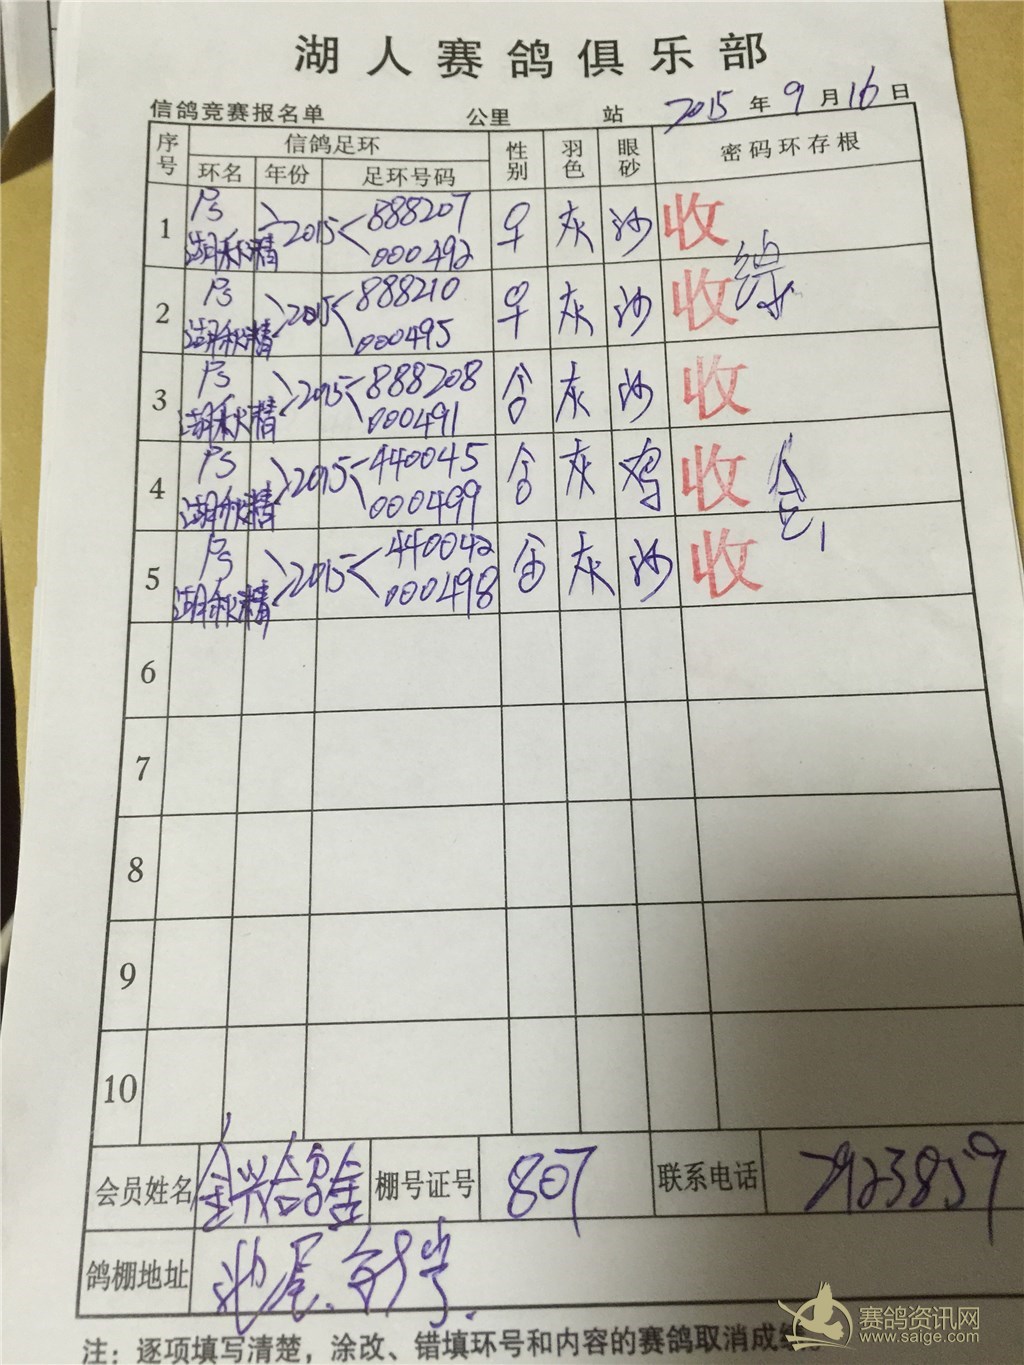 湖人赛鸽俱乐部
信鸽竞赛报名单 公里 站 2015年9月16日
序号 信鸽足环 性别 羽色 眼砂 密码环存根
环名 年份 足环号码
1 PS 2015 888207 灰 沙 收
湖秋精 000492
2 PS 2015 888210 灰 沙 收
湖秋精 000495
3 PS 2015 888208 灰 沙 收
湖秋精 000491
4 PS 2015 440045 灰 鸡 收
湖秋精 000499
5 PS 2015 440042 灰 沙 收
湖秋精 000498
6
7
8
9
10
会员姓名 棚号证号 807 联系电话 7923859
鸽棚地址
注：逐项填写清楚，涂改、错填环号和内容的赛鸽取消成绩
赛鸽资讯网
www.saige.com